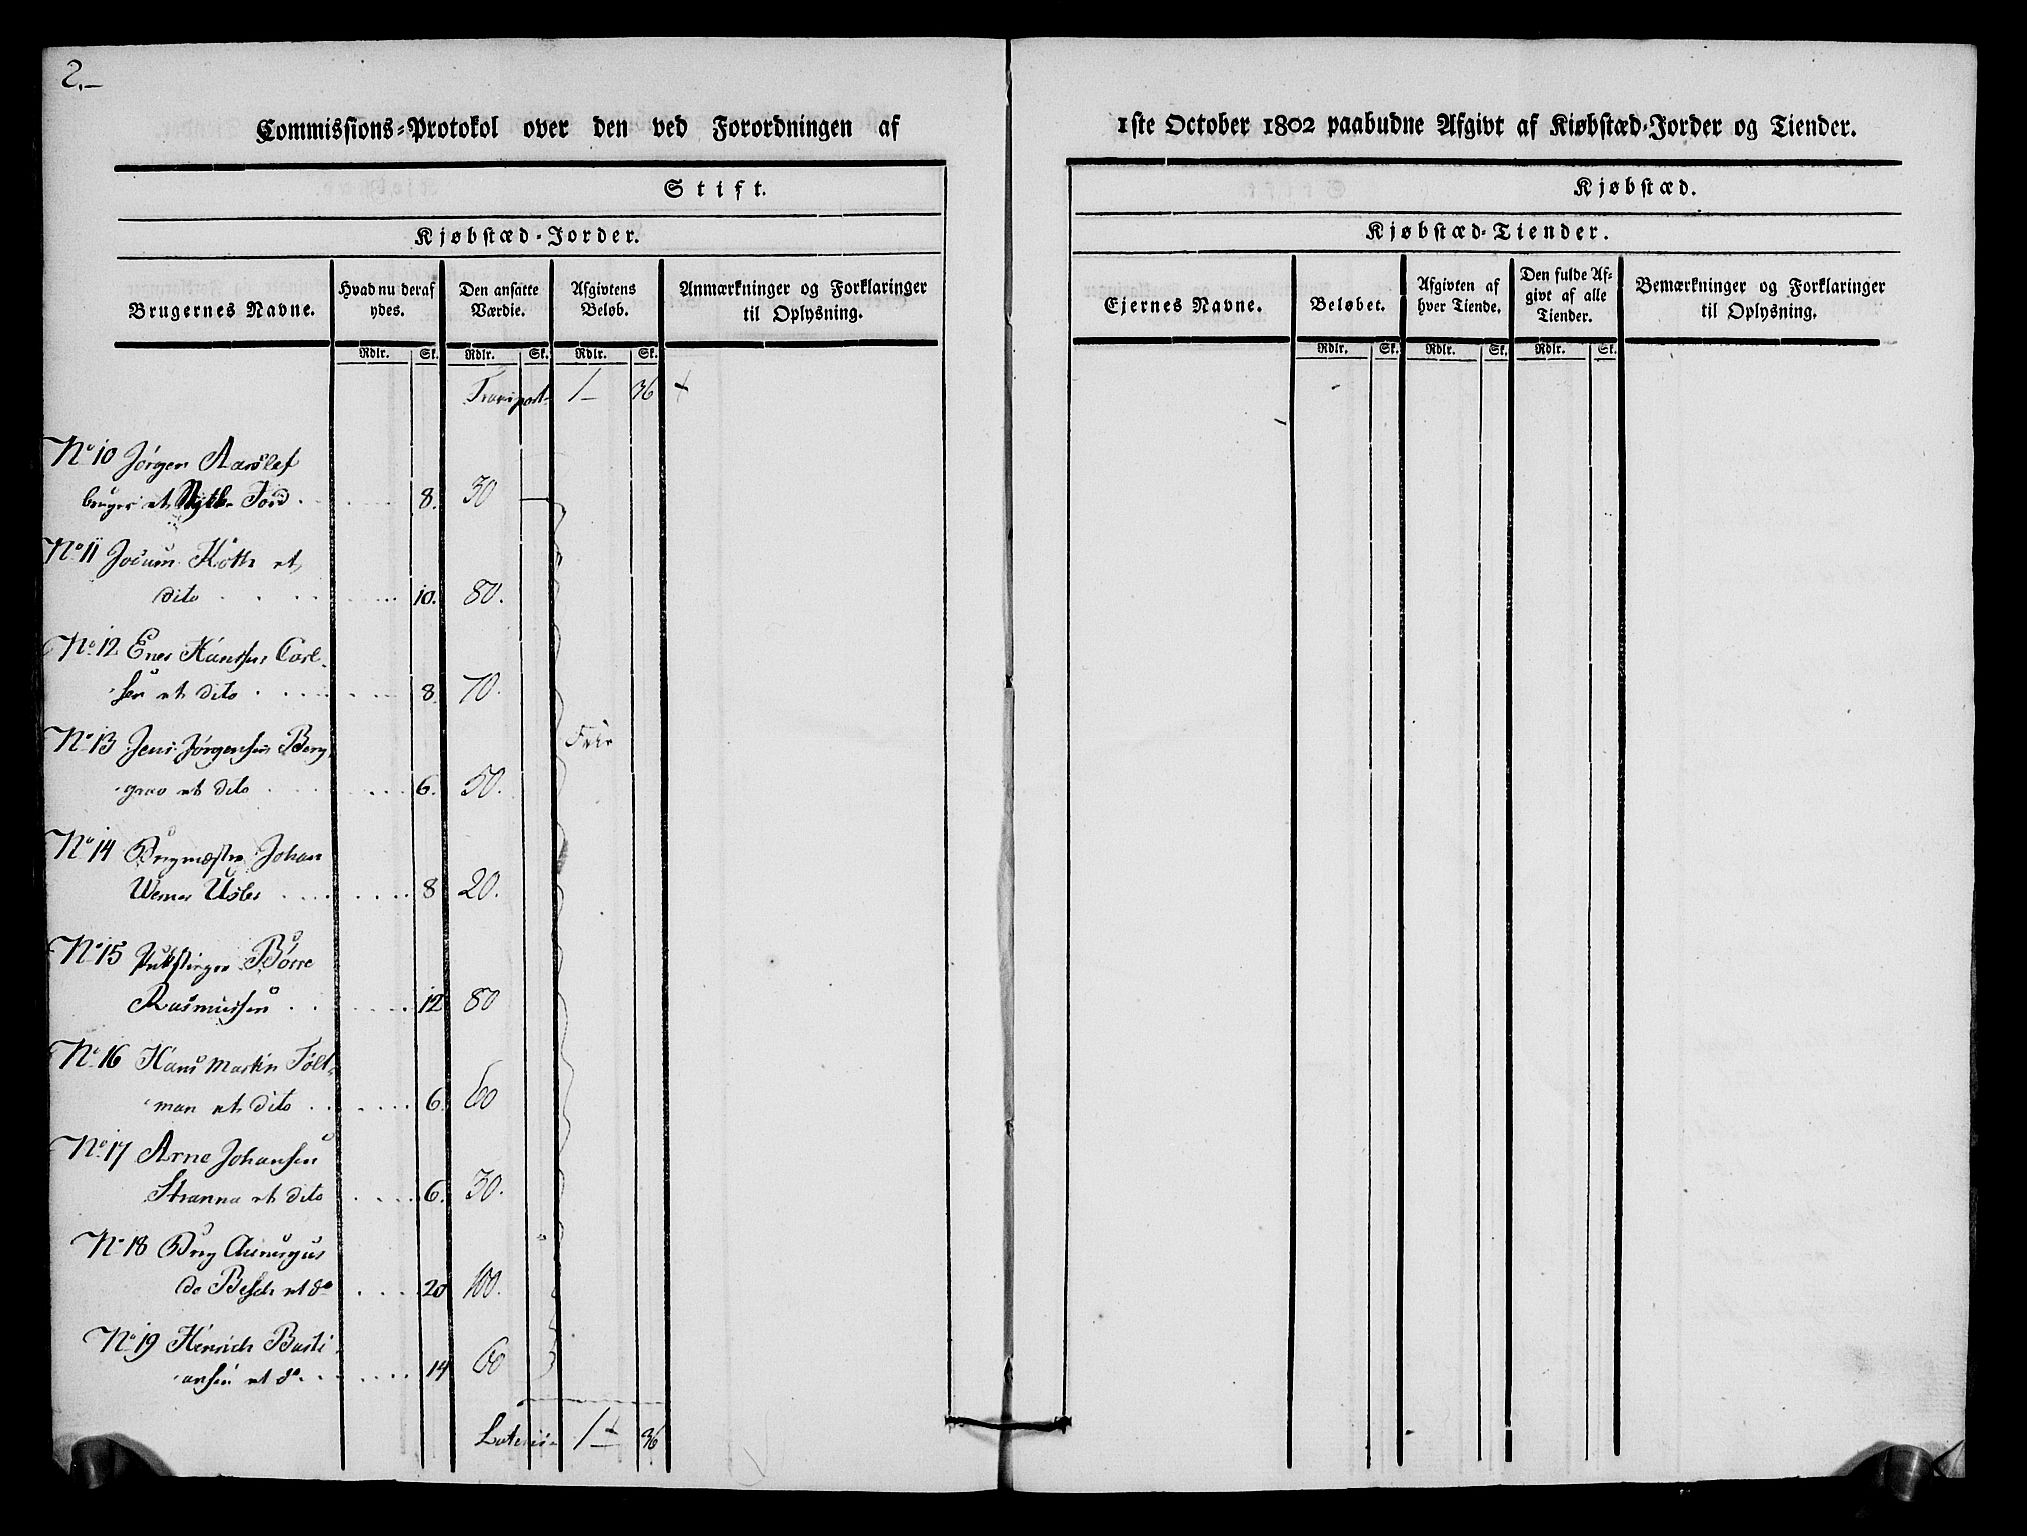 2.
Commissions-Protokol over den ved Forordningen af
Stift.
Kjøbstæd-Jorder.
Brugernes Navne.
Hvad nu deraf ydes.
Den ansatte Værdie.
Afgivtens Beløb.
Anmærkninger og Forklaringer til Oplysning.
Rdlr. Sk. Rdlr. Sk. Rdlr. Sk.
Transport 1 — 36 +
No 10 Jörgen Aarslef
bruger et Stykke Jord . . . 8. 30 —
No 11 Jocum et
dito . . . . . 10. 80.
No 12 Ener Hanssen Carl-
sen et dito . . . . . 8. 70.
No 13 Jens Jörgensen Berg
grav et dito . . . . . 6. 50.
Frie
No 14 Johan
Werner . . . . . 8 20.
No 15 Börre
Rasmussen . . . . . 12 80
No 16 Hans Martin Tölt-
man et dito . . . . . 6. 60
No 17 Arne Johansen
Stranna et dito . . . . . 6. 30.
No 18
de Besche et do . . . . 20 100.
No 19 Henrich Basti-
ansen et do . . . . . 14 60
Lateris 1 — 36
1ste October 1802 paabudne Afgivt af Kiøbstæd-Jorder og Tiender.
Kjøbstæd.
Kjøbstæd-Tiender.
Ejernes Navne.
Beløbet.
Afgivten af hver Tiende.
Den fulde Afgivt af alle Tiender.
Bemærkninger og Forklaringer til Oplysning.
Rdlr. Sk. Rdlr. Sk. Rdlr. Sk.